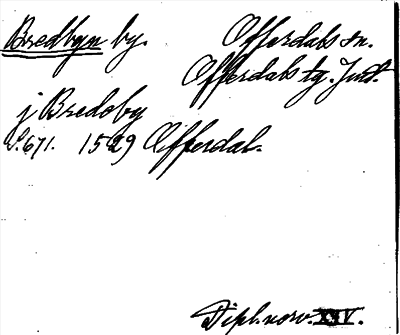 Bredbyn by. Offerdals sn.
Offerdals tg. Jmtl.
j Bredoby
S. 671. 1529 Offerdal.
Dipl. norv. XIV.